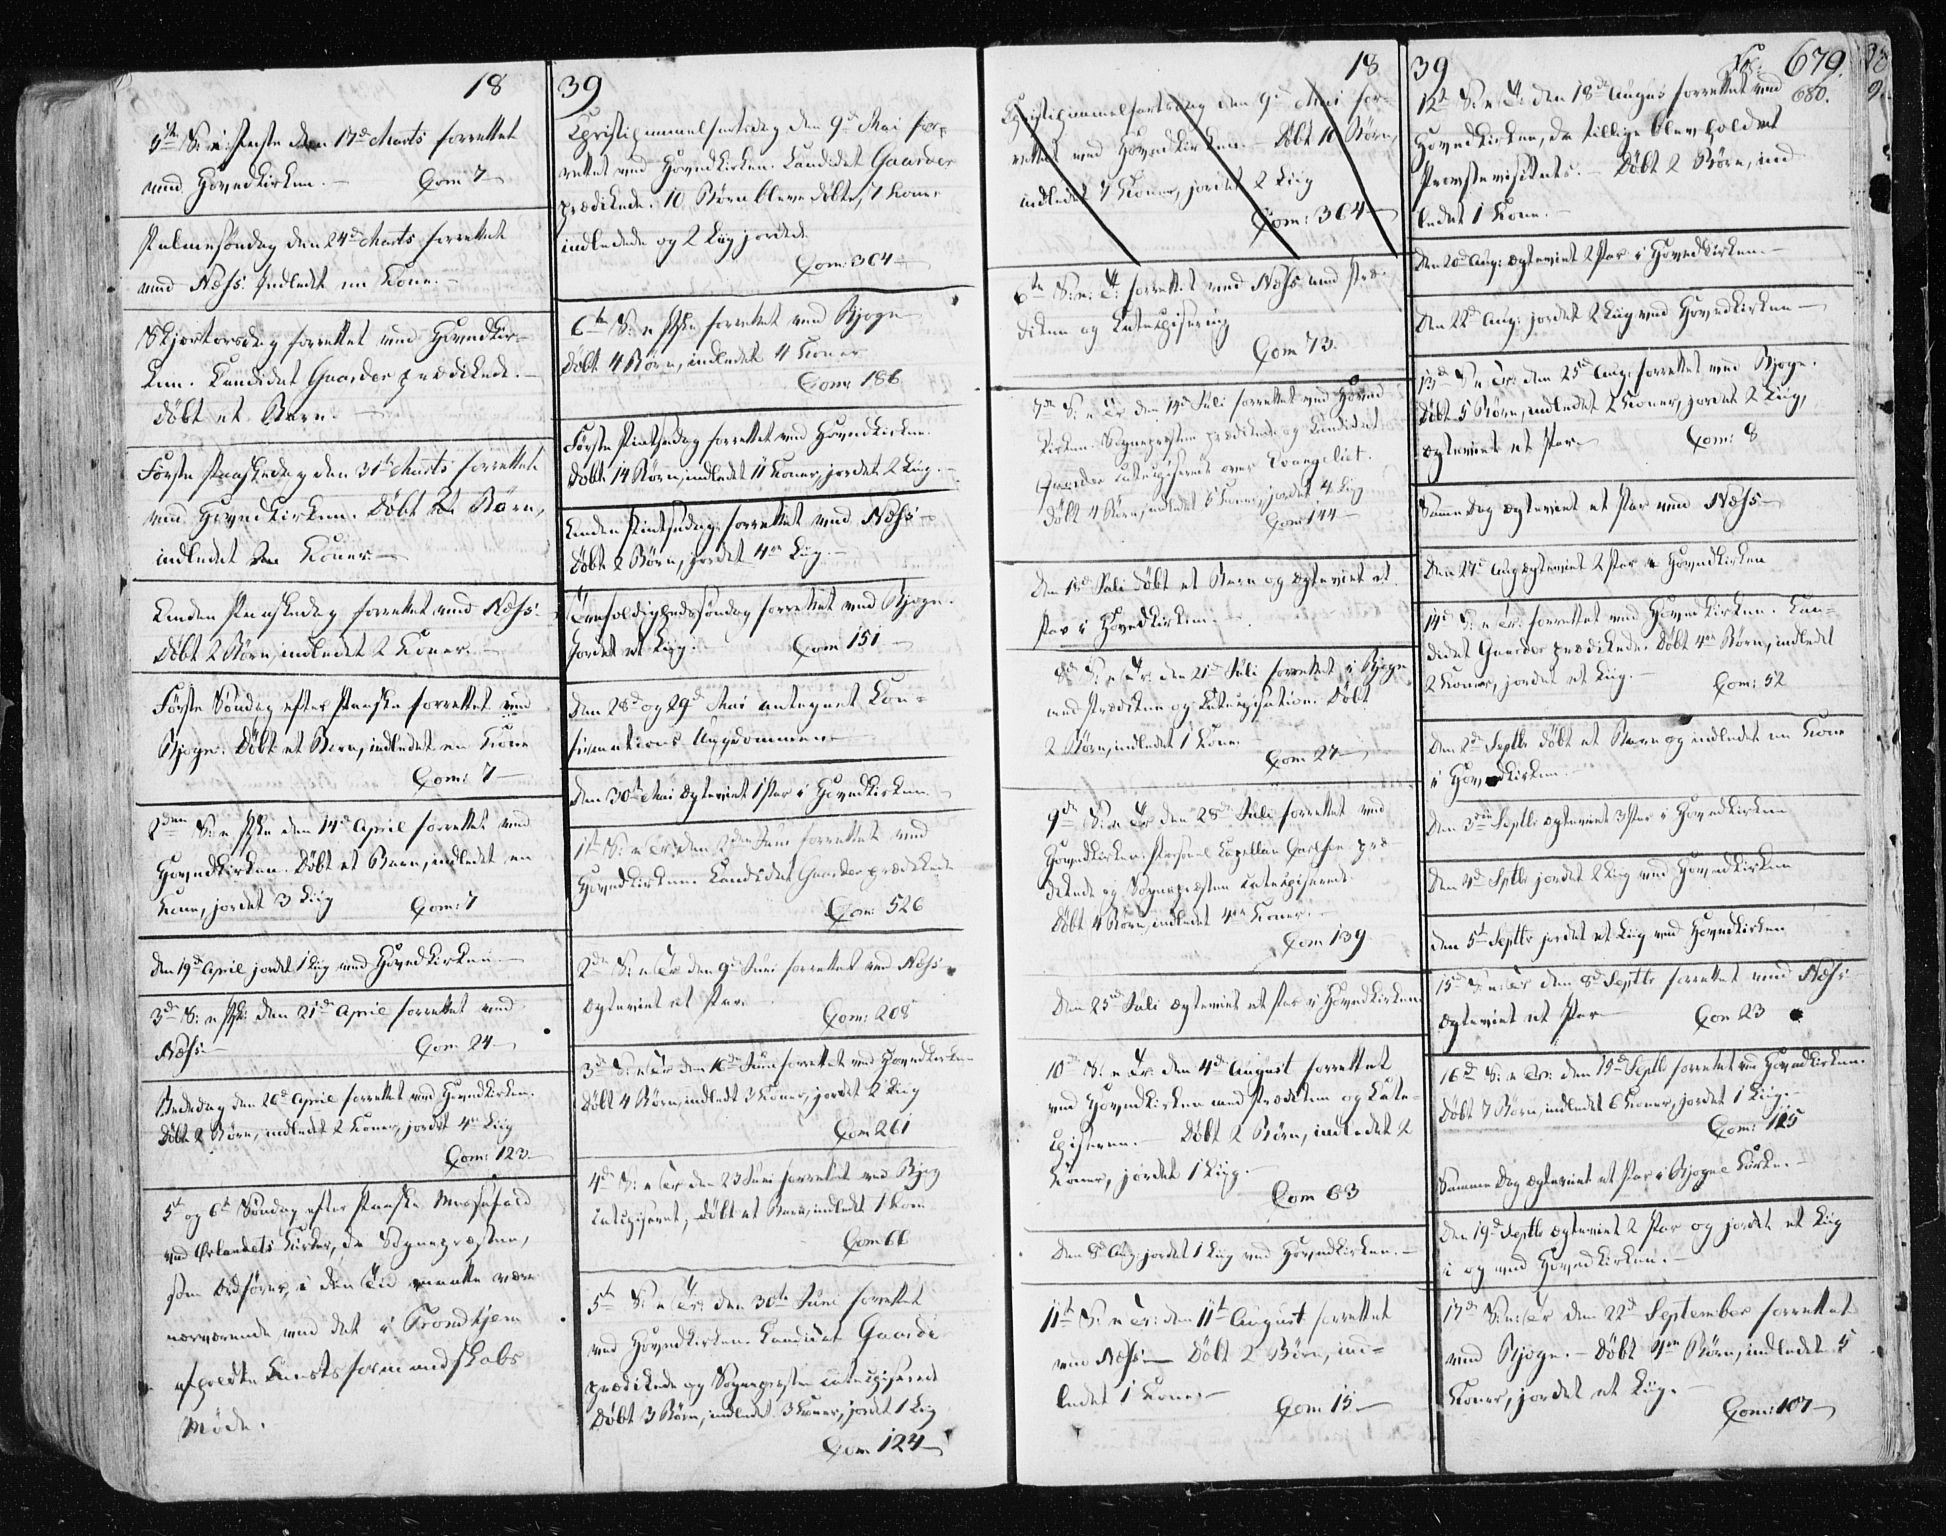 18
5te S: i Faste den 17de Marts forrettet
ved Hovedkirken. — Com 7
Palmesöndag den 24de Marts forrettet
ved Næss. Indledt en Kone. —
Skjærtorsdag forrettet ved Hovedkir-
ken. Kandidat Gaarder prædikede. —
Döbt et Barn. —
Förste Paaskedag den 31te Marts forrettet
ved Hovedkirken. Döbt Börn,
indledet Koner. —
Anden Paaskedag forrettet ved Næss.
Döbt 2 Börn, indledet 2 Koner. —
Förste Söndag efter Paaske forrettet ved
Bjogn. Döbt et Barn, indledet en Kone
Com: 7 —
2den S: e Pske den 14de April forrettet ved
Hovedkirken. Döbt et Barn, indledet en
Kone, jordet 3 Liig Com: 7
Den 19de April jordet 1 Liig ved Hovedkirken —
3de S: e Pske: den 21de April forrettet ved
Næss — Com 24 —
Bededag den 26de April forrettet ved Hovedkirken.
Döbt 2 Börn, indledet 2 Koner, jordet 4re Liig
Com: 123 —
5te og 6te Söndag efter Paaske Messefald
ved Ørlandets Kirker, da Sognepræsten,
som Ordförer, i den Tid maatte være
nærværende ved det i Trondhjem
afholdte Amtsformandskabs
Möde.
39
Christihimmelfartsdag den 9de Mai for-
rettet ved Hovedkirken. Kandidat Gaarder
prædikede. 10 Börn bleve döbte, 7 Koner
indledede og 2 Liig jordede
Com: 304 —
6te S: e Pske forrettet ved Bjogn
Döbt 4 Börn, indledet 4 Koner
Com: 186
Förste Pintsedag forrettet ved Hovedkirken.
Döbt 14 Börn, indledet 11 Koner, jordet 2 Liig. —
Anden Pintsedag forrettet ved Næss —
Döbt 2 Börn, jordet 4re Liig. —
Trefoldighedssöndag forrettet ved Bjogn.
Jordet et Liig. — Com 151 —
Den 28de og 29de Mai antegnet Con-
firmations Ungdommen —
Den 30te Mai Egteviet 1 Par i Hovedkirken
1ste S: e Tr: den 2den Juni forrettet ved
Hovedkirken. Kandidat Gaarder prædikede
Com: 526
2den S: e Tr den 9de Juni forrettet ved Næss
Egteviet et Par. Com: 208
3de S: e Tr den 16de Juni forrettet ved Hovedkirken
Döbt 4 Börn, indledt 3 Koner, jordet 2 Liig
Com 261
4de S: e Tr den 23 Juni forrettet ved Bjogn
Catechiseret, Döbt et Barn, indledt 1 Kone
Com 66
5te S: e Tr: den 30te Juni forrettet
ved Hovedkirken. Kandidat Gaarder
prædikede og Sognepræsten catechiserede
Döbt 3 Börn, indledet 3 Koner, jordet 1 Liig
Com 124 —
18
Christihimmelfartsdag den 9de Mai for-
rettet ved Hovedkirken. — Döbt 10 Börn,
indledet 7 Koner, jordet 2 Liig
Com: 304 —
6te S: e: T: forrettet ved Næss med Præ-
diken og Catechisering
Com 73
7de S: e Tr den 14de Juli forrettet ved Hoved
kirken. Sognepræsten prædikede og Kandidat
Gaarder catechiserede over Evangeliet.
Döbt 4 Börn, indledet 6 Koner, jordet 4 Liig
Com 144 —
Den 18de Juli döbt et Barn og Egteviet et
Par i Hovedkirken. —
8de S: e Tr: den 21de Juli forrettet i Bjogn
med Prædiken og Catechisation. Döbt
2 Börn, indledet 1 Kone
Com 27 —
9de S: e Tr den 28de Juli forrettet ved
Hovedkirken. Personel Capellan Carlsen præ-
dikede og Sognepræsten catechiserede
Döbt 4 Börn, indledet 4re Koner. —
Com 139
Den 25de Juli Egteviet et Par i Hovedkirken
10de S: e Tr: den 4de August forrettet
ved Hovedkirken med Prædiken og Cate-
chiseren. — Döbt 2 Börn, indledet 2
Koner, jordet 1 Liig. —
Com 63
Den 8de Aug: jordet 1 Liig ved Hovedkirken. —
11te S: e Tr: den 11te August forrettet
ved Næss — Döbt 2 Börn, ind-
ledet 1 Kone. — Com 15 —
39 679.
680.
12te S: e T: den 18de August forrettet ved
Hovedkirken, da tillige blev holdet
Provstevisitats. — Döbt 2 Börn, ind
ledet 1 Kone. —
Den 20de Aug: Egteviet 2 Par i Hovedkirken. —
Den 22de Aug: jordet 2 Liig ved Hovedkirken —
13de S e Tr: den 25de Aug: forrettet ved Bjogn.
Döbt 5 Börn, indledet 2 Koner, jordet 2 Liig,
Egteviet et Par. — Com: 8
Samme Dag Egteviet et Par ved Næss —
Den 27de Aug Egteviet 2 Par i Hovedkirken
14de S: e Tr: forrettet ved Hovedkirken. Kan-
didat Gaarder prædikede. Döbt 4re Börn, indledet
2 Koner, jordet et Liig. — Com: 52
Den 2de Septbr döbt et Barn og indledet en Kone
i Hovedkirken
Den 3die Septbr Egteviet 3 Par i Hovedkirken
Den 4de Sptbr jordet 2 Liig ved Hovedkirken
Den 5te Septbr jordet et Liig ved Hovedkirken
15de S: e: Tr den 8de Septbr forrettet ved Næss
Egteviet et Par — Com 23
16de S: e Tr: den 15de Septbr forrettet ved Hovedkirken.
Döbt 7 Börn, indledet 6 Koner, jordet 1 Liig. —
Com: 125
Samme Dag Egteviet et Par i Bjogns Kirke. —
Den 19de Septbr Egteviet 2 Par og jordet et Liig
i og ved Hovedkirken. —
17de S: e: Tr den 22de September forrettet
ved Bjogn. — Döbt 4re Börn, indledet 5
Koner, jordet et Liig. —
Com: 107 —